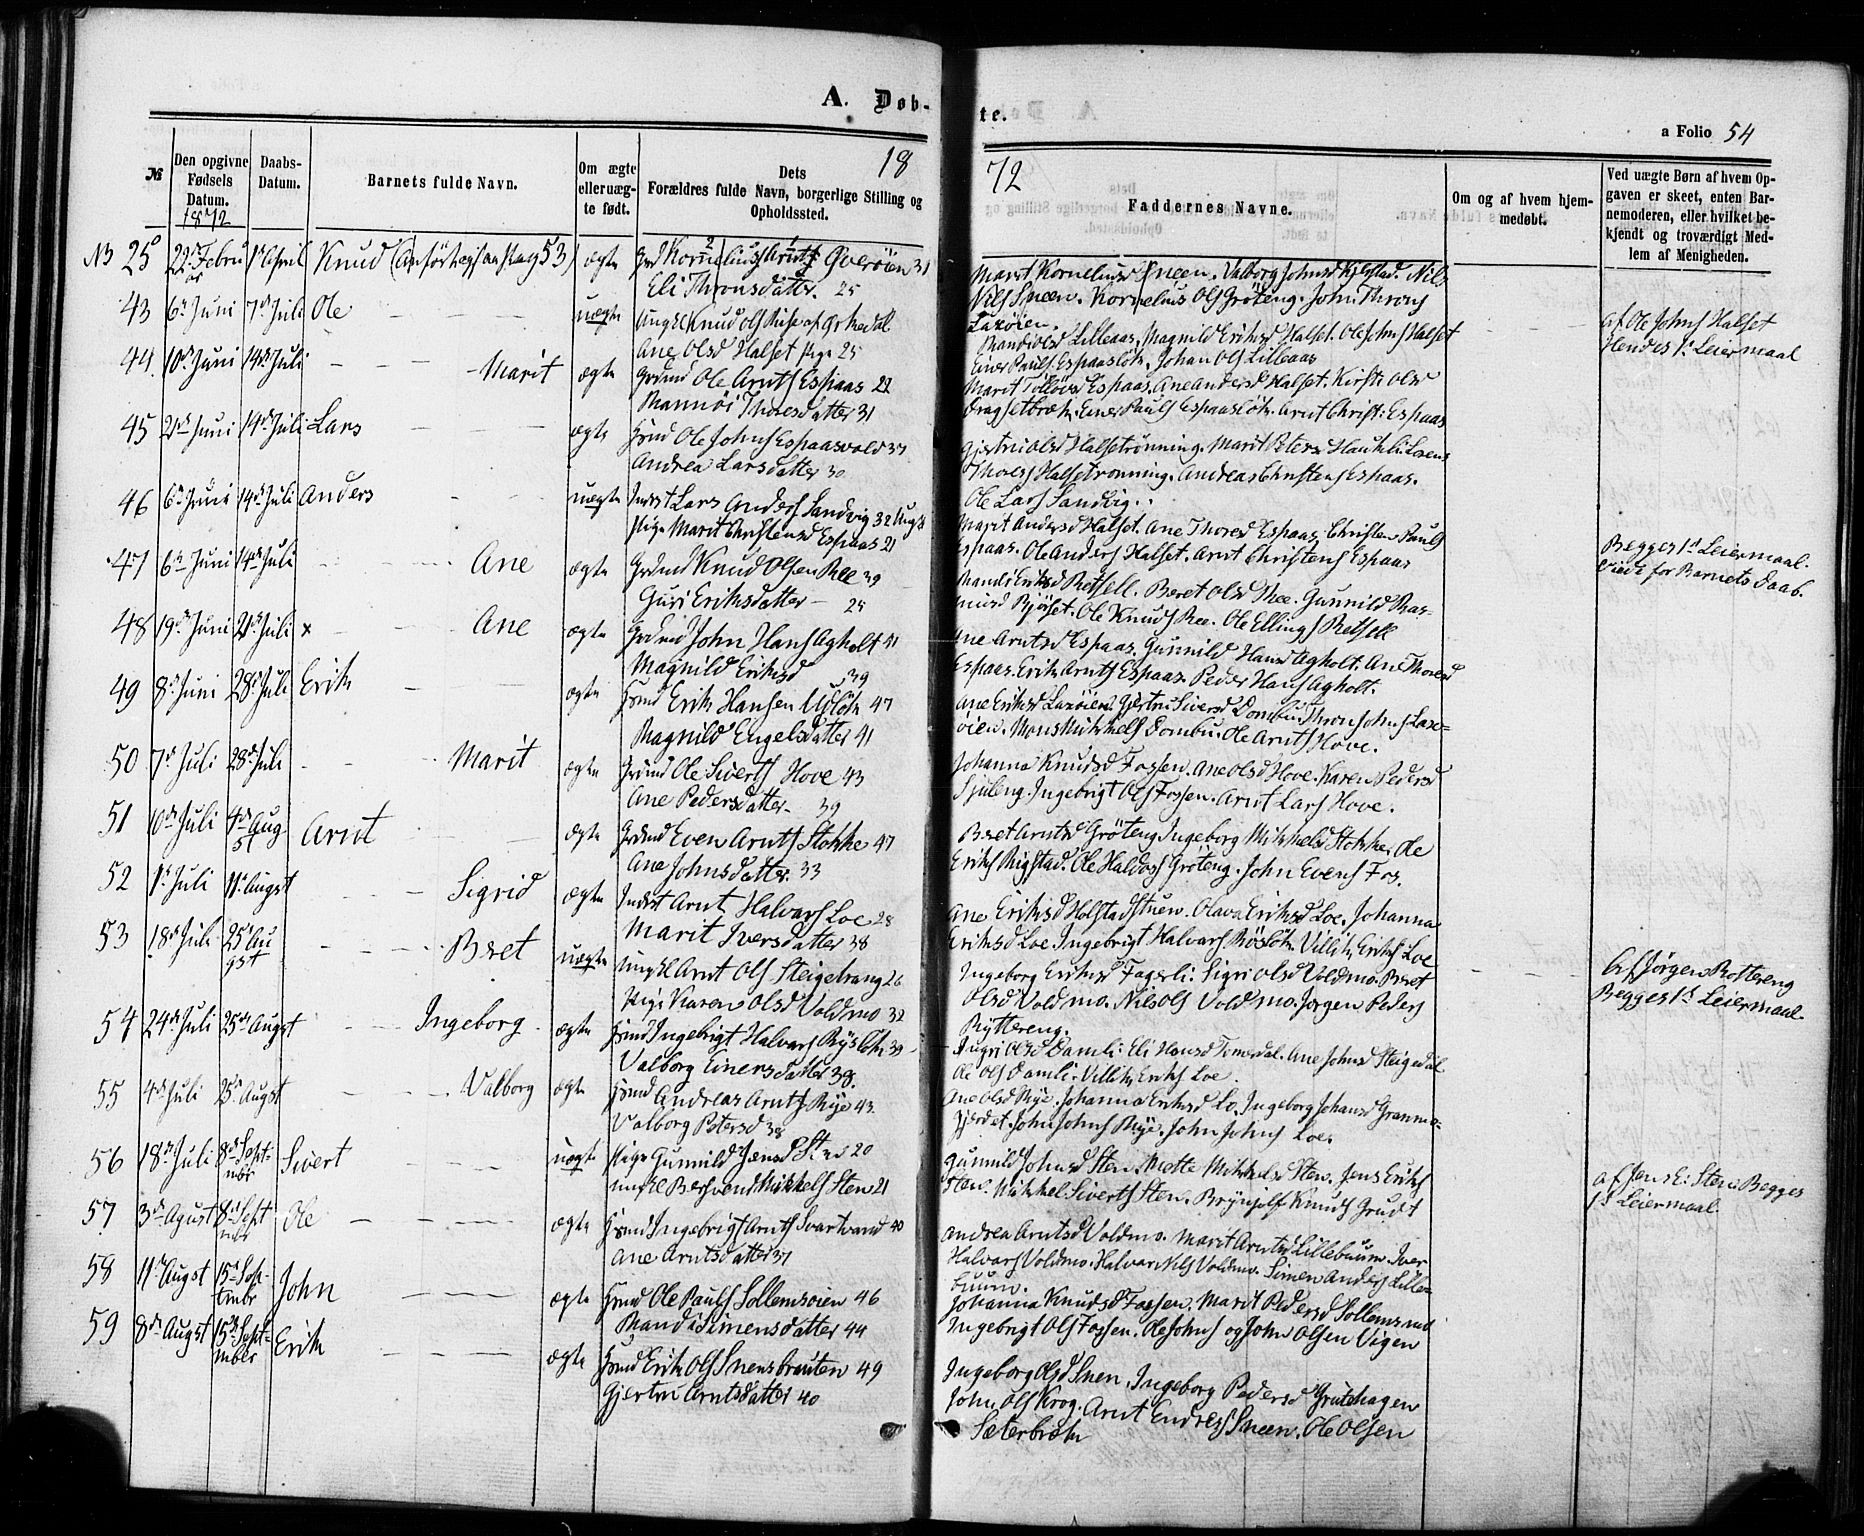 A. Døb-
te.
a Folio 54
18
72
№
Den opgivne Fødsels Datum.
1872
Daabs-Datum.
Barnets fulde Navn.
Om ægte eller uæg-te født.
Dets Forældres fulde Navn, borgerlige Stilling og Opholdssted.
Faddernes Navne.
Om og af hvem hjem-medøbt.
Ved uægte Børn af hvem Op-gaven er skeet, enten Bar-nemoderen, eller hvilket be-kjendt og troværdigt Med-lem af Menigheden.
NB 25 22d Febru ar 1st April Knud ægte
Eli Thronsdatter. 25
Marit Korneliusd Sneen. Valborg Johnsd Kjelstad. Nils
Nils Sneen. Kornelius Ols Grøteng. John Throns
Larøien.
43 6te Juni 7d Juli Ole uægte Ungkl Knud Ols Riise af Ørkedal
Ane Olsd Halset pige 25
Randi Olsd Lilleaas. Magnild Eriksd Halset. Ole Johns Halset
Einer Pauls Espaasløkk. Johan Ols Lilleaas
af Ole Johns Halset
Hendes 1st Leiermaal
44 10de Juni 14de Juli Marit ægte Grdmd Ole Arnts Espaas 22
Thoresdatter 31
Marit Espaas. Ane Andersd Halset. Kirsti Olsd
Einer Pauls Espaasløkk. Arnt Christ: Espaas
45 2de Juni 14de Juli Lars ægte Hsmd Ole Johns Espaasvold 37
Andrea Larsdatter 30
Gjertru Olsd Halsetrønning. Marit Petersd Haukli. Lorens
Thores Halsetrønning. Andreas Christens Espaas.
Ole Lars Sandvig.
46 6te Juni 14de Juli Anders uægte Inderst Lars Anders Sandvig 32 Ungk
Pige Marit Christensd Espaas 21
Marit Andersd Halset. Ane Thoresd Espaas. Christen Pauls
Espaas. Ole Anders Halset. Arnt Christens Espaas
Begges 1st Leiermaal.
Viede før Barnets Daab.
47 6te Juni 14de Juli Ane ægte Grdmd Knud Olsen Ree 39
Guri Eriksdatter 25
Randi Eriksd Retsell. Beret Olsd Ree. Gunnild Ras-
musd Bjørset. Ole Knuds Ree. Ole Ellings Retsell
48 19de Juni 21de Juli x Ane ægte Grdmd John Hans Agholt 41
Magnild Eriksd 39
Ane Arntsd Espaas. Gunnild Hansd Agholt. Ane Thoresd
Espaas. Erik Arnts Espaas. Peder Hans Agholt.
49 8de Juni 28de Juli Erik ægte Hsmd Erik Hansen Upløkk 47
Magnild Engelsdatter 41
Ane Eriksd Larøien. Gjertru Siversd Dombu. Thron Johns Lar-
øien. Mons Mikkels Dombu. Ole Arnts Hove.
50 7de Juli 28de Juli Marit ægte Grdmd Ole Siverts Hove 43
Ane Pedersdatter 39
Johanna Knudsd Fossen. Ane Olsd Hove. Karen Pedersd
Ingebrigt Ols Fossen. Arnt Lars Hove.
51 10de Juli 4de Aug st Arnt ægte Grdmd Even Arnts Stokke 47
Ane Johnsdatter. 33
Bret Arntsd Grøteng. Ingeborg Mikkelsd Stokke. Ole
Eriks Rigstad. Ole Haldos Grøteng. John Evens Fos.
52 1st Juli 11te Augst Sigrid ægte Inderst Arnt Halvars Loe 28
Marit Iversdatter 38
Ane Eriksd Holstadstuen. Olava Eriksd Loe. Johanna
Eriksd Loe. Ingebrigt Halvars Røsløkk. Villik Eriks Loe
53 18de Juli 25de Au gst Bret uægte Ungkl Arnt Ols Steigetrang 26
Pige Karen Olsd Voldmo 32
Ingeborg Eriksd Fagerli. Sigri Olsd Voldmo. Beret
Olsd Voldmo. Nils Ols Voldmo. Jørgen Peders
Røttereng.
af Jørgen Rottereng
Begges 1st Leiermaal.
54 24de Juli 25de Augst Ingeborg ægte Hsmd Ingebrigt Halvars Rysløkk 39
Valborg Einersdatter 38.
Ingri Olsd Damli. Eli Hansd Tomesdal. Ane Johnsd Steigedal
Ole Ols Damli. Villik Eriks Loe.
55 4de Juli 25de Augst Valborg ægte Hsmd Andreas Arnts Rye 43
Valborg Petersd 38
Ane Olsd Rye. Johanna Eriksd Lo. Ingeborg Johansd Granmo-
Gjerdet. John Johns Rye. John Johns Loe.
56 18de Juli 8de Sept-mbr Sivert uægte Pige Gunnild Jensd Sten 20
ungkl Bersvend Mikkels Sten 21
Gunnild Johnsd Sten. Mette Mikkelsd Sten. Jens Eriks
Sten. Mikkel Siverts Sten. Brynjulf Knuds Grudt
af Jens E: Sten. Begges
1st Leiermaal
57 3de Agust 8de Sept mbr Ole ægte Hsmd Ingebrigt Arnts Svartvand 40
Ane Arntsdatter 37
Andrea Arntsd Voldmo. Marit Arntsd Lillebuum. Iver
Halvars Voldmo. Halvar Nils Voldmo. Simen Anders Lille-
buum.
58 11te Augst 15de Sep-tmbr John ægte Hsmd Ole Pauls Sollemsøien 46
Randi Simensdatter 44
Johanna Knudsd Fossen. Marit Pedersd Sollemsmo
Ingebrigt Ols Fossen. Ole Johns og John Olsen Vigen
59 8de Augst 15de Sept-mber Erik ægte Hsmd Erik Ols Snensbrauten 49
Gjertru Arntsdatter 40
Ingeborg Olsd Snen. Ingeborg Pedersd Grutehagen
John Ols Krog. Arnt Endres Sneen. Ole Olsen
Sæterbrøkk